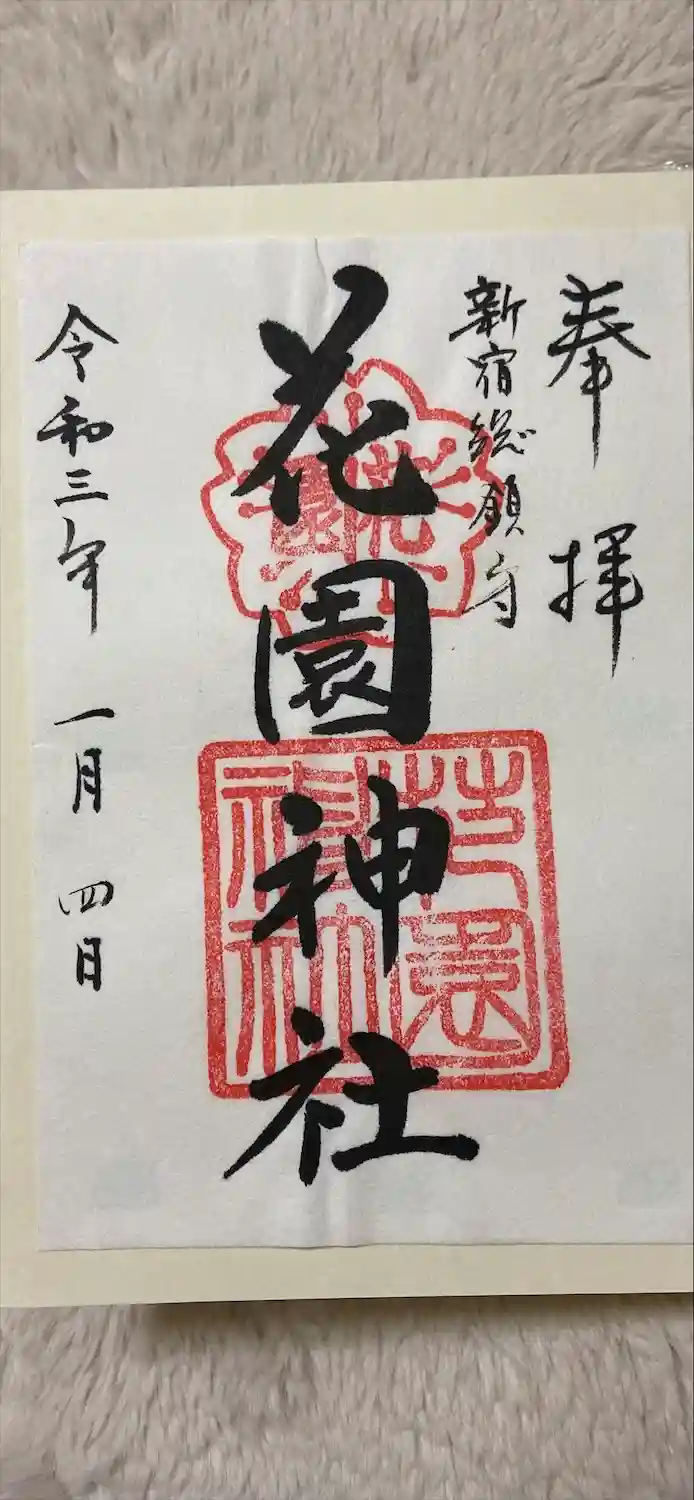 奉拝
新宿総鎮守
花園神社
花園
花園神社
令和三年 一月 四日